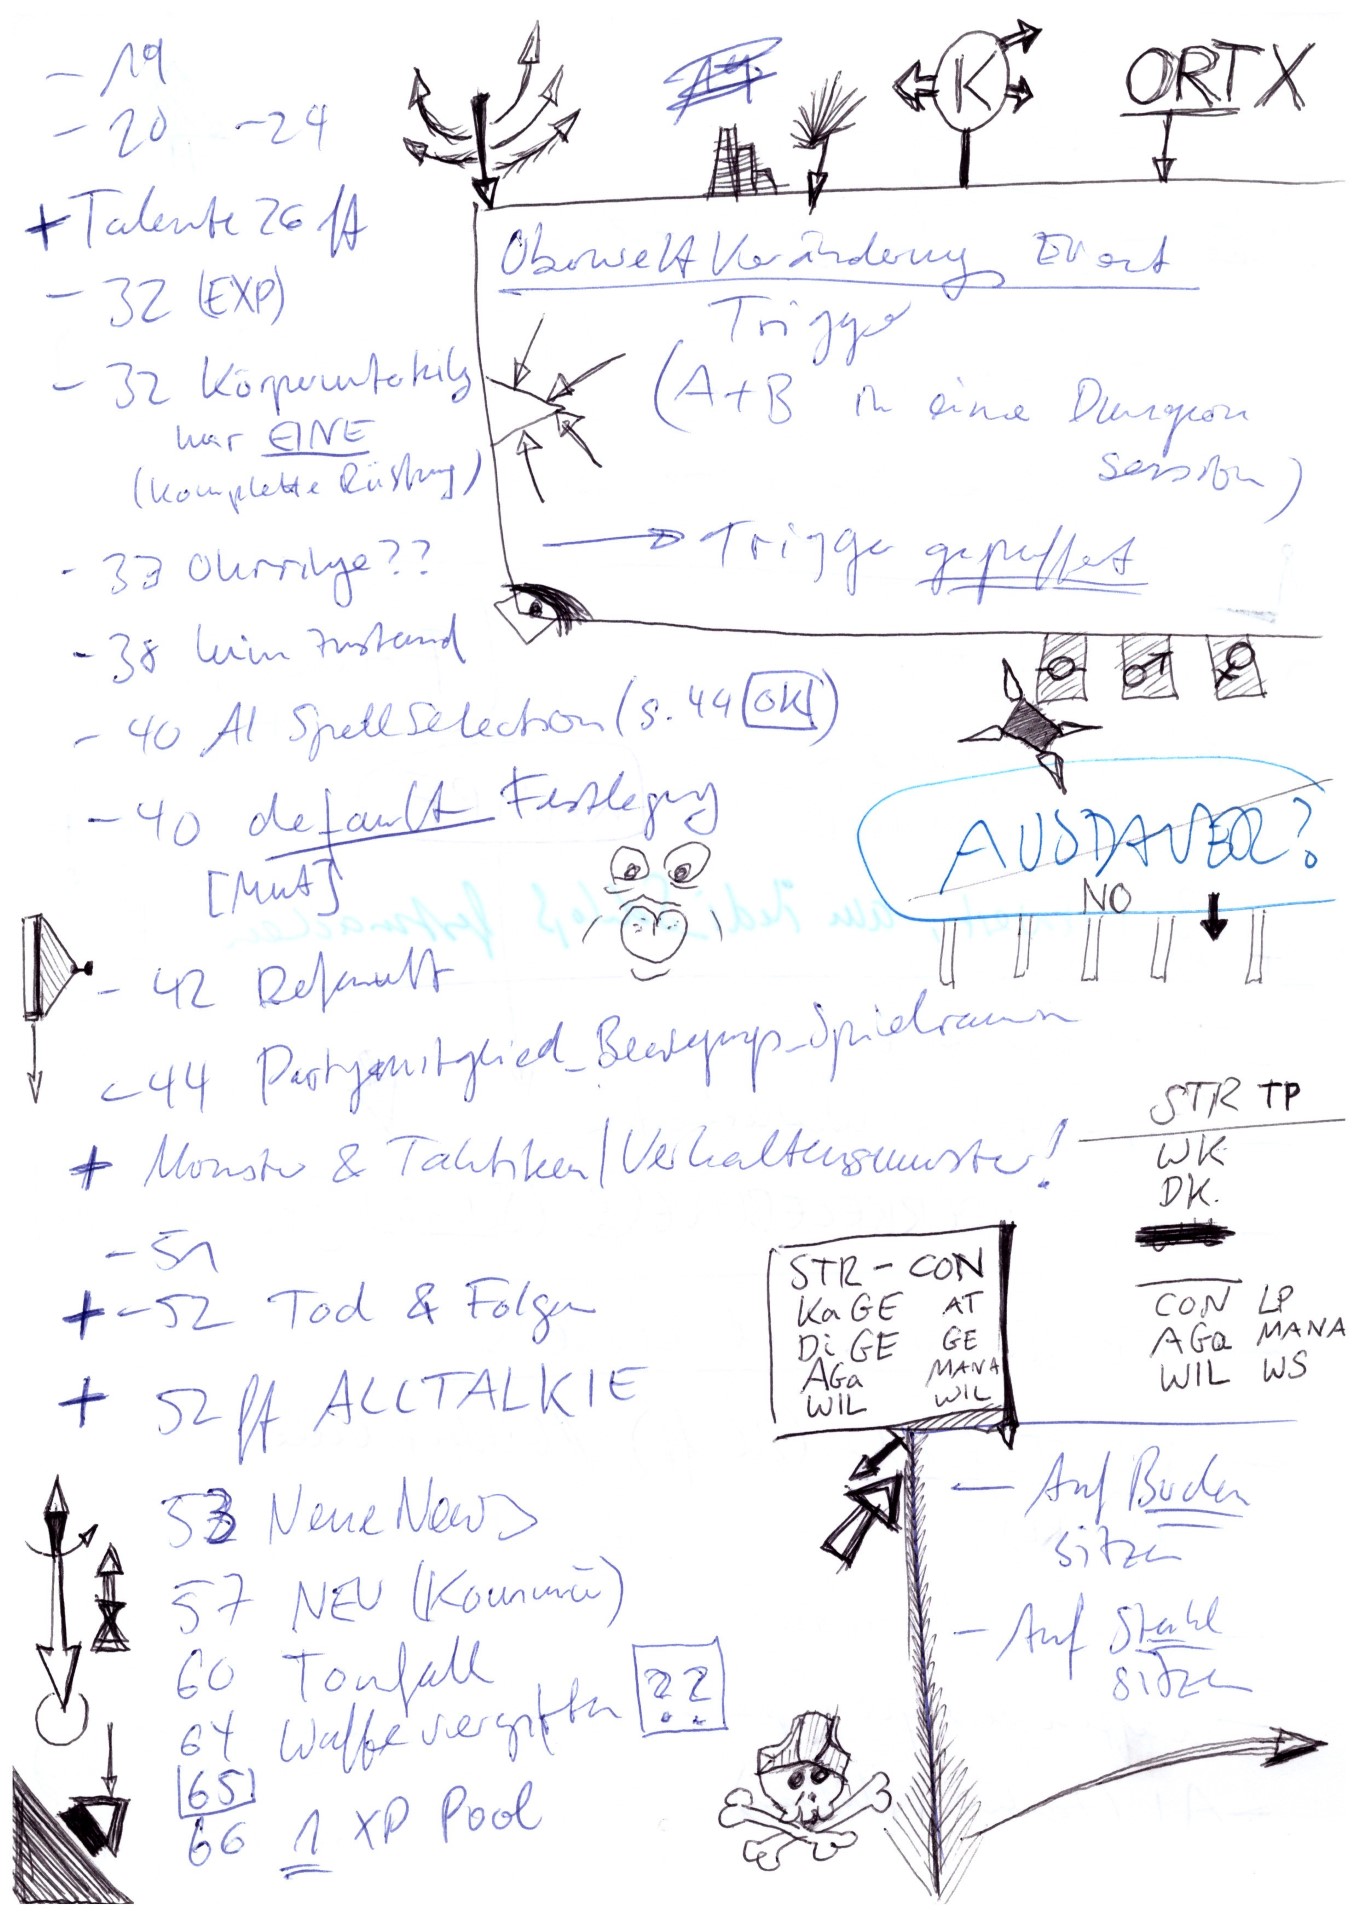 - 19
- 20 - 24
+ Talente 26 ff
- 32 (EXP)
- 32 Körperunterteilg
nur EINE
(komplette Rüstung)
- 33 Ohrringe??
- 38 kein Zustand
- 40 AI Spell Selection (s. 44 OK)
- 40 default Festlegung
[Mut]
- 42 Default
- 44 Partymitglied_Bewegungs_Spielraum
+ Monster & Taktiken/Verhaltensmuster!
- 51
+ - 52 Tod & Folgen
+ 52 ff ALLTALKIE
53 Neue News
57 NEU (Kommű)
60 Tonfall
64 Waffe vergiften ??
65
66 1 XP Pool
K
ORT X
Oberwelt Veränderung Event
Trigger
(A+B in einer Dungeon
session)
→ Trigger gepuffert
AUSDAUER?
NO
STR TP
WK
DK.
CON LP
AGa MANA
WIL WS
STR - CON
KaGE AT
DiGE GE
AGa MANA
WIL WIL
- Auf Boden
sitzen
- Auf Stuhl
sitzen